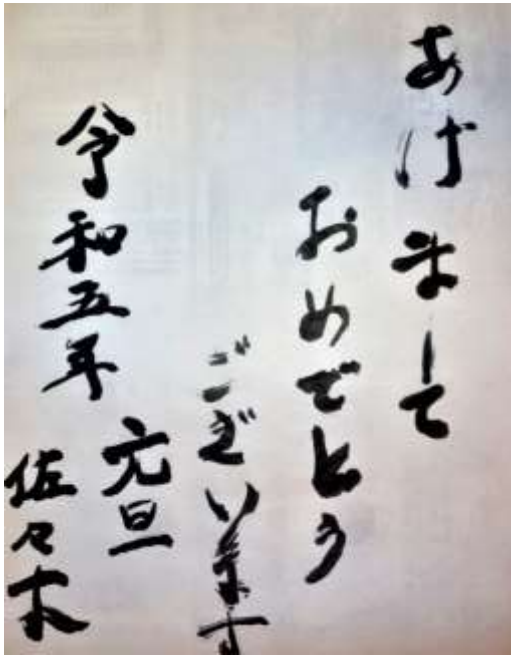 あけまして
おめでとう
ございます
令和五年
元旦
佐々木